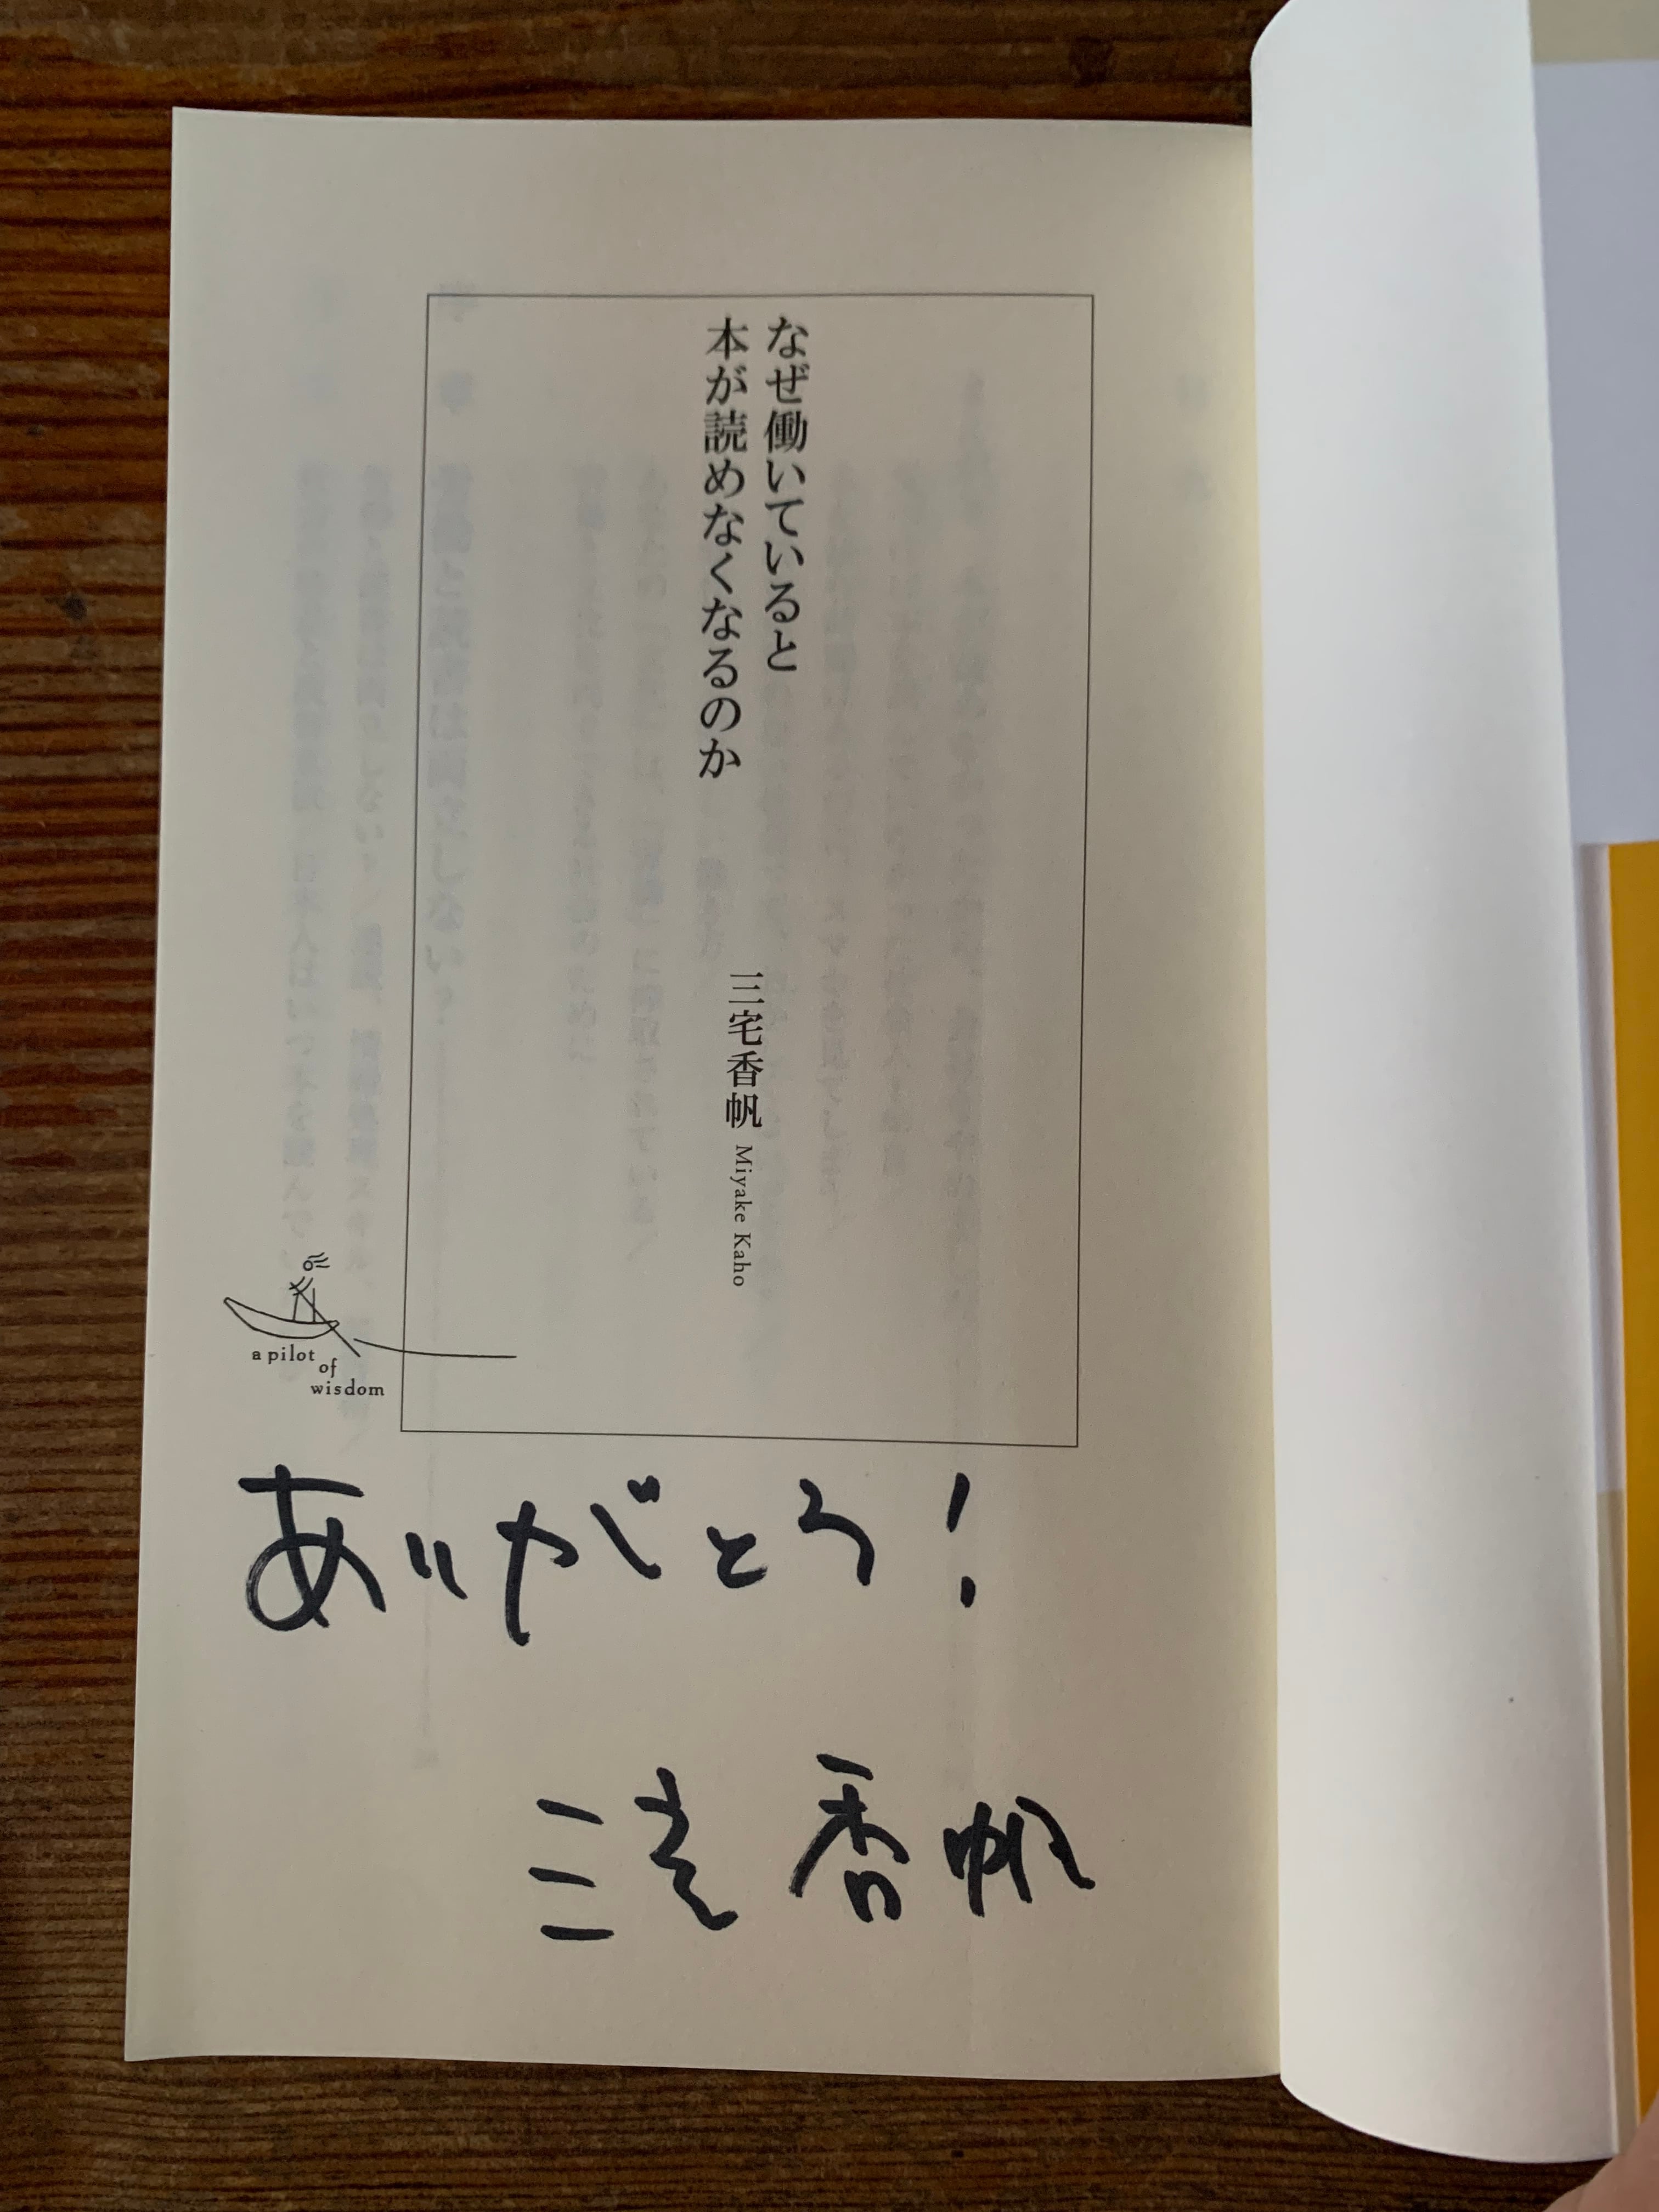 なぜ働いていると
本が読めなくなるのか
三宅香帆 Miyake Kaho
a pilot
of
wisdom
ありがとう!
三宅 香帆